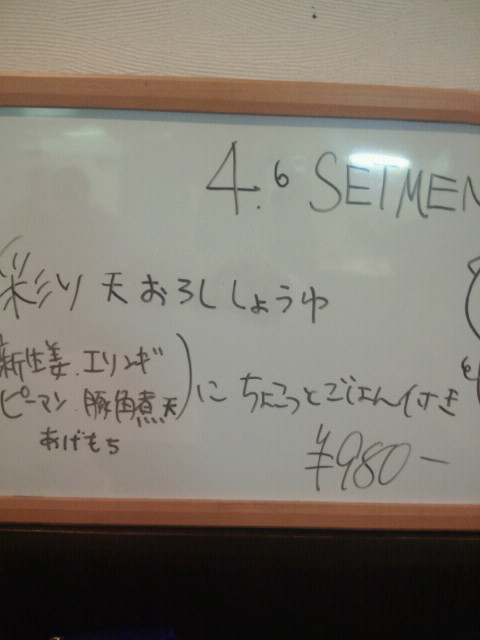 4.6 SETMEN
彩り天おろししょうゆ
新生姜.エリンギ
ピーマン.豚角煮天
あげもち
にちょこっとごはん付き
¥980-